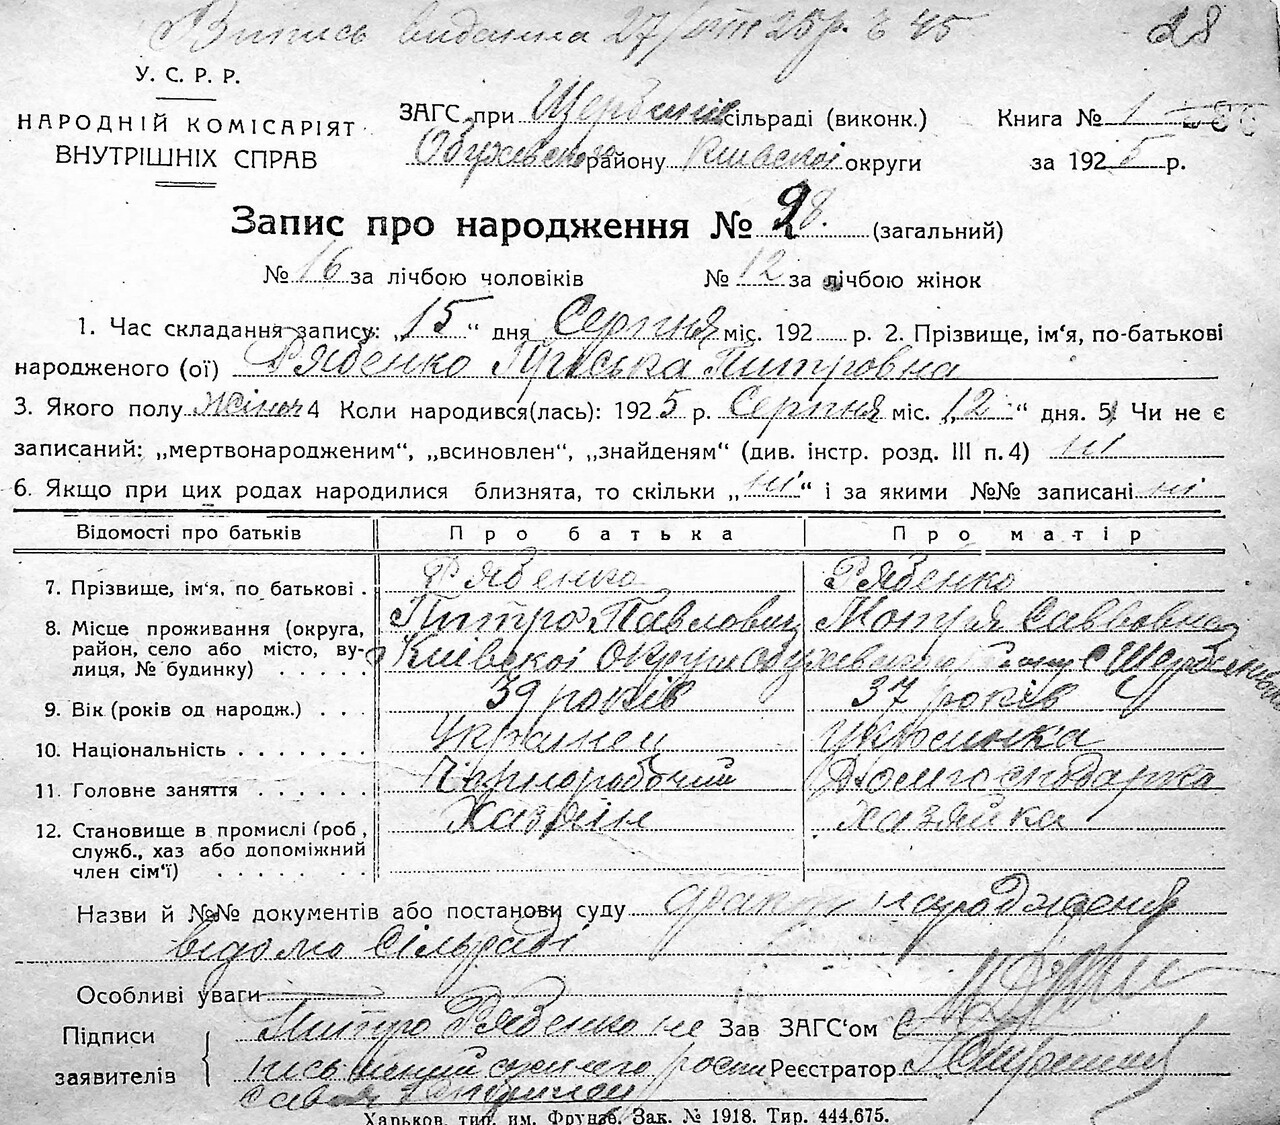 Випись видана 27/ 25р. 45 28
У. С. Р. Р.
НАРОДНІЙ КОМІСАРІЯТ
ВНУТРІШНІХ СПРАВ
ЗАГС при сільраді (виконк.) Книга № 1
району Київської округи за 1925 р.
Запис про народження № 28. (загальний)
№ 16 за лічбою чоловіків № 12 за лічбою жінок
1. Час складання запису: „15“ дня Серпня міс. 192 р. 2. Прізвище, ім‘я, по-батькові
народженого (ої) Рябенко Питровна
3. Якого полу жіноч 4 Коли народився(лась): 1925 р. Серпня міс. „12“ дня. 5. Чи не є
записаний: „мертвонародженим“, „всиновлен“, „знайденям“ (див. інстр. розд. III п. 4) ні
6. Якщо при цих родах народилися близнята, то скільки „ні“ і за якими №№ записані ні
Відомості про батьків Про батька Про матір
7. Прізвище, ім‘я, по батькові . Рябенко Рябенко
Питро Павлович Мотря Саввовна
8. Місце проживання (округа, район, село або місто, вулиця, № будинку) . . . . . Київскоі округи
9. Вік (років од народж.) . . . 39 років 37 років
10. Національність . . . . . . . Украінец Украінка
11. Головне заняття . . . . . . Чорноробочий Домгосподарка
12. Становище в промислі (роб, служб., хаз або допоміжний член сім‘ї) . . . . . . . Хазяін хазяйка
Назви й №№ документів або постанови суду факт народженя
відомо Сільраді
Особливі уваги
Підписи заявителів Питро Рябенко не Зав ЗАГС‘ом
Реєстратор
Харьков, тип. им. Фрунзе. Зак. № 1918. Тир. 444.675.